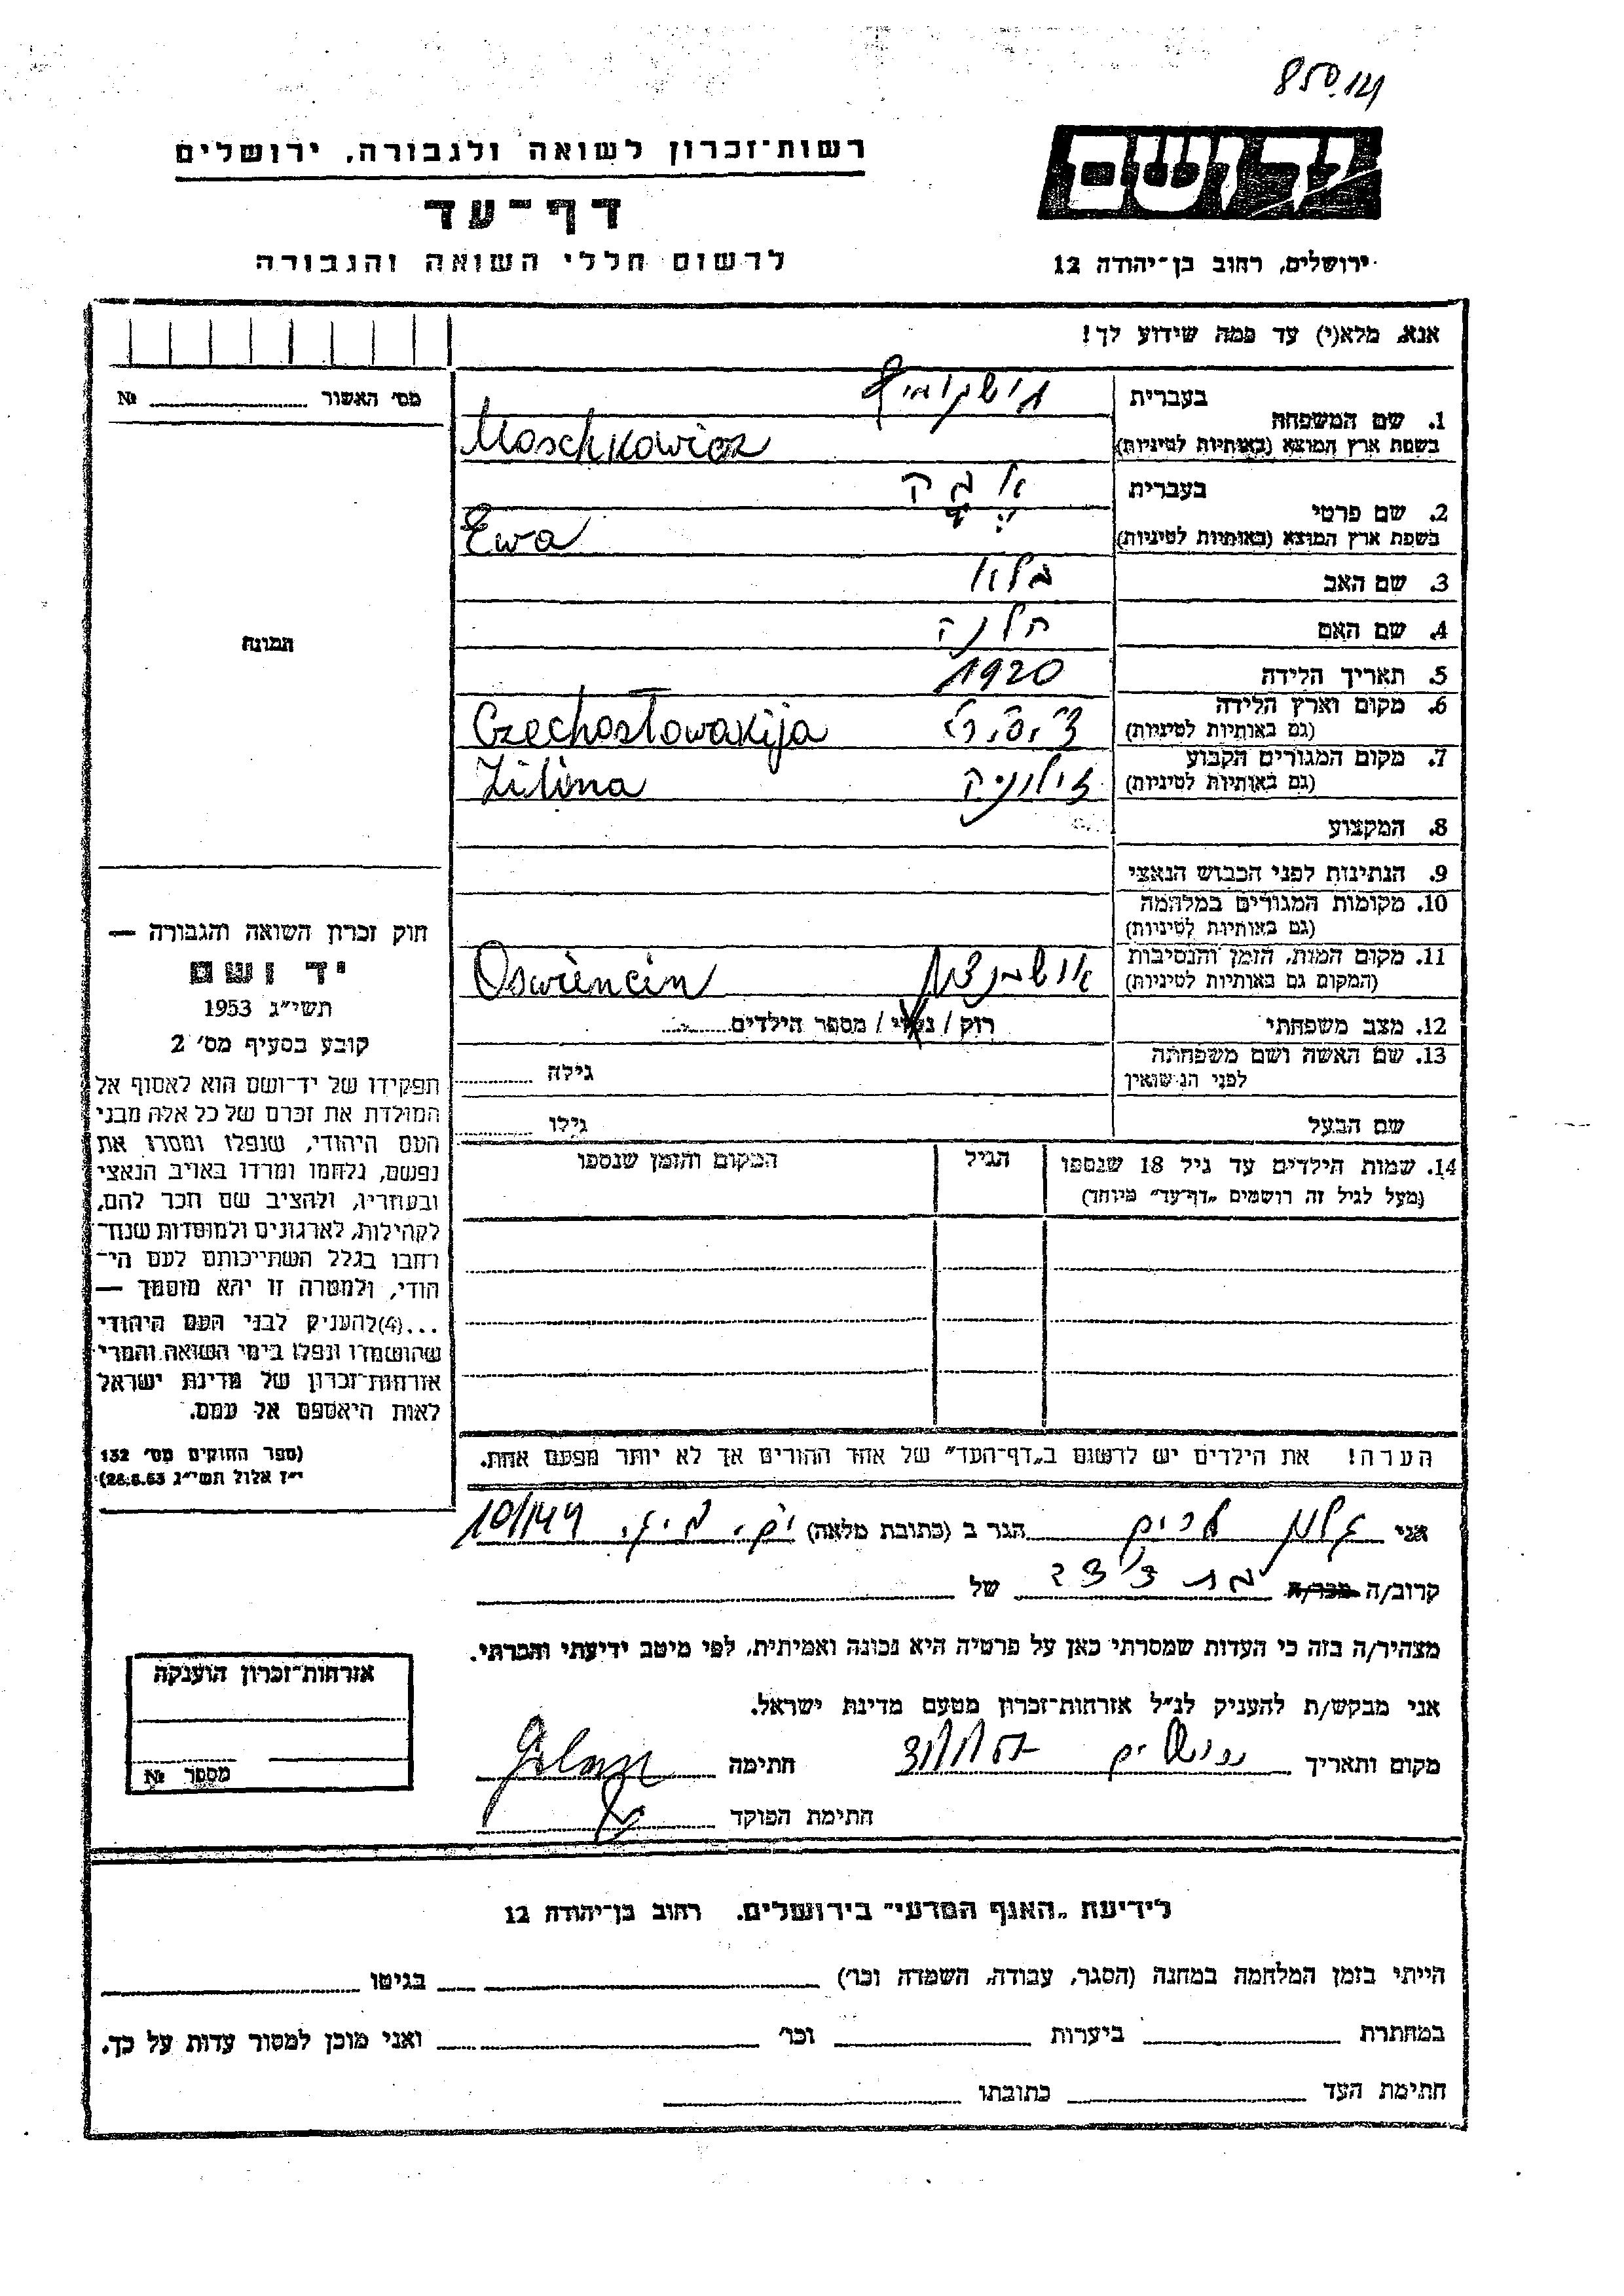 850.14
רשות־זכרון לשואה ולגבורה, ירושלים
דף־עד
לרשום חללי השואה והגבורה
יד ושם
ירושלים, רחוב בן־יהודה 12
אנא, מלא(י) עד כמה שידוע לך!
מס׳ האשור № 
1. שם המשפחה
בעברית
בשפת ארץ המוצא (באותיות לטיניות)
Moschkowicz
2. שם פרטי
בעברית
אוה
בשפת ארץ המוצא (באותיות לטיניות)
Ewa
3. שם האב
בלא
4. שם האם
הלנה
5. תאריך הלידה
1920
6. מקום וארץ הלידה
(גם באותיות לטיניות)
Czechosłowakija
7. מקום המגורים הקבוע
(גם באותיות לטיניות)
Zilina
8. המקצוע
9. הנתינות לפני הכבוש הנאצי
10. מקומות המגורים במלחמה
(גם באותיות לטיניות)
11. מקום המות, הזמן והנסיבות
(המקום גם באותיות לטיניות)
Oswiencin
12. מצב משפחתי
רוק / נשוי / מספר הילדים
13. שם האשה ושם משפחתה
לפני הנשואין
גילה
שם הבעל
גילו
14. שמות הילדים עד גיל 18 שנספו
(מעל לגיל זה רושמים „דף־עד״ מיוחד)
הגיל
המקום והזמן שנספו
הערה! את הילדים יש לרשום ב„דף־העד״ של אחד ההורים אך לא יותר מפעם אחת.
תמונה
חוק זכרון השואה והגבורה —
יד ושם
תשי״ג 1953
קובע בסעיף מס׳ 2
תפקידו של יד־ושם הוא לאסוף אל
המולדת את זכרם של כל אלה מבני
העם היהודי, שנפלו ומסרו את
נפשם, נלחמו ומרדו באויב הנאצי
ובעוזריו, ולהציב שם וזכר להם,
לקהילות, לארגונים ולמוסדות שנח־
רחבו בגלל השתייכותם לעם הי־
הודי, ולמטרה זו יהא מוסמך —
...(4)להעניק לבני העם היהודי
שהושמדו ונפלו בימי השואה והמרי
אזרחות־זכרון של מדינת ישראל
לאות היאספם אל עמם.
(ספר החוקים מס׳ 132
י״ז אלול תשי״ג 28.8.53)
אני
הגר ב (כתובת מלאה)
10/149
קרוב/ה מכר/ה
של
מצהיר/ה בזה כי העדות שמסרתי כאן על פרטיה היא נכונה ואמיתית, לפי מיטב ידיעתי והכרתי.
אני מבקש/ת להעניק לנ״ל אזרחות־זכרון מטעם מדינת ישראל.
מקום ותאריך
ירושלים
חתימה
חתימת הפוקד
אזרחות־זכרון הוענקה
מספר №
לידיעת „האגף המדעי״ בירושלים. רחוב בן־יהודה 12
הייתי בזמן המלחמה במחנה (הסגר, עבודה, השמדה וכו׳) בגיטו
במחתרת ביערות וכו׳ ואני מוכן למסור עדות על כך.
חתימת העד כתובתו